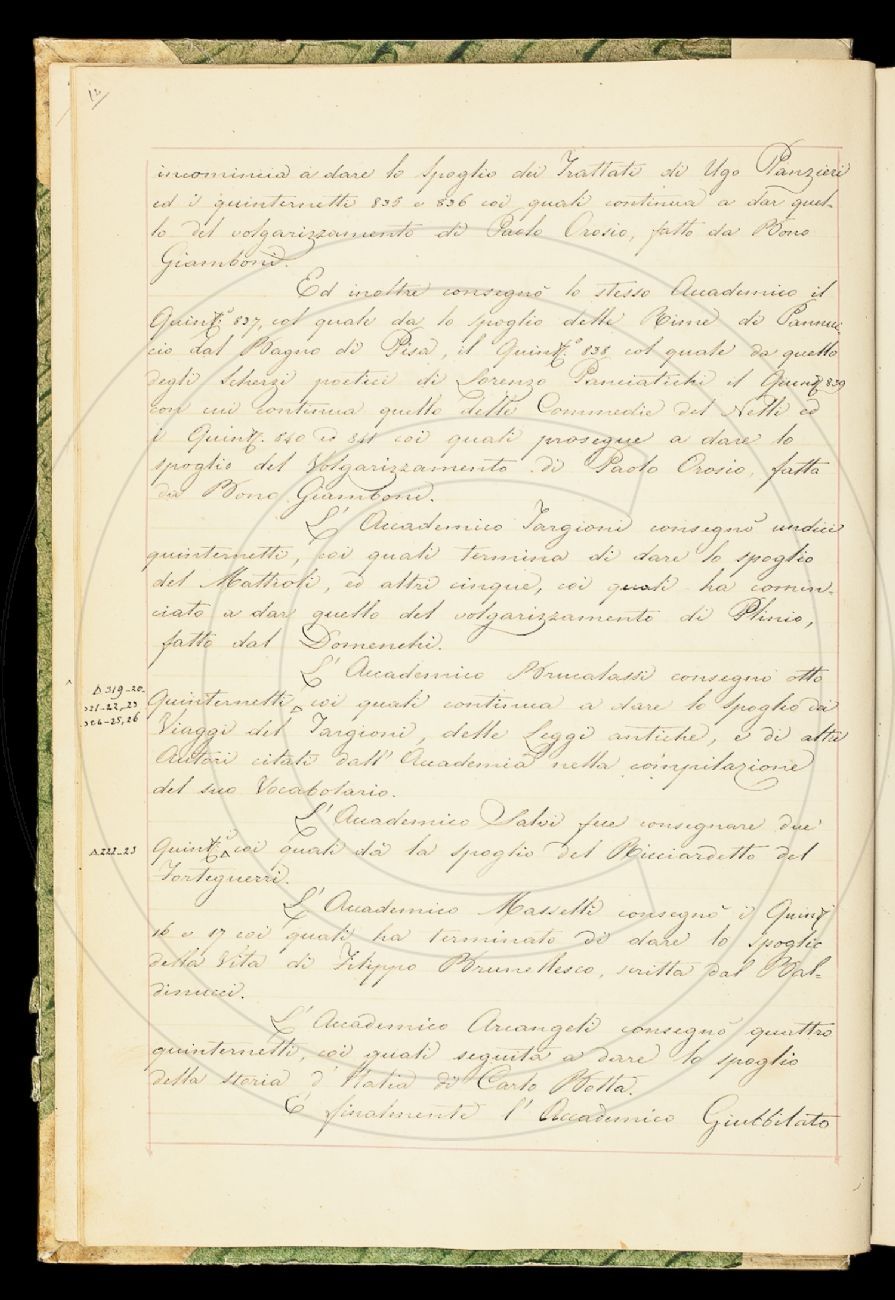 12
incomincia a dare lo spoglio dei Trattati di Ugo Panzieri
ed i quinternetti 835 e 836 coi quali continua a dar quel-
lo del volgarizzamento di Paolo Orosio, fatto da Bono
Giamboni.
Ed inoltre consegnò lo stesso Accademico il
Quint.º 837, col quale da lo spoglio delle Rime di Pannuc
cio dal Bagno di Pisa, il Quint.º 838 col quale da quello
degli Scherzi poetici di Lorenzo Panciatichi il Quint. 839
con cui continua quello delle Commedie del Nelli ed
i Quint. 840 ed 841 coi quali prosegue a dare lo
spoglio del Volgarizzamento di Paolo Orosio, fatta
da Bono Giamboni.
L' Accademico Targioni consegnò undici
quinternetti, coi quali termina di dare lo spoglio
del Mattioli, ed altri cinque, coi quali ha comin-
ciato a dar quello del volgarizzamento di Plinio,
fatto dal Domenchi.
L' Accademico Brucalassi consegnò otto
Quinternetti coi quali continua a dare lo spoglio dei
Δ 319-20-
321-22-23
324-25,26
Viaggi del Targioni, delle Leggi antiche, e di altri
Autori citati dall' Accademia nella compilazione
del suo Vocabolario.
L' Accademico Salvi fece consegnare due
Δ 222-23
Quint.i coi quali dà la spoglio del Ricciardetto del
Forteguerri.
L' Accademico Masselli consegnò i Quint.i
16 e 17 coi quali ha terminato di dare lo spoglio
della Vita di Filippo Brunellesco, scritta dal Bal-
dinucci.
L' Accademico Arcangeli consegnò quattro
quinternetti, coi quali seguita a dare lo spoglio
della storia d' Italia di Carlo Botta.
E finalmente l' Accademico Giubbilato